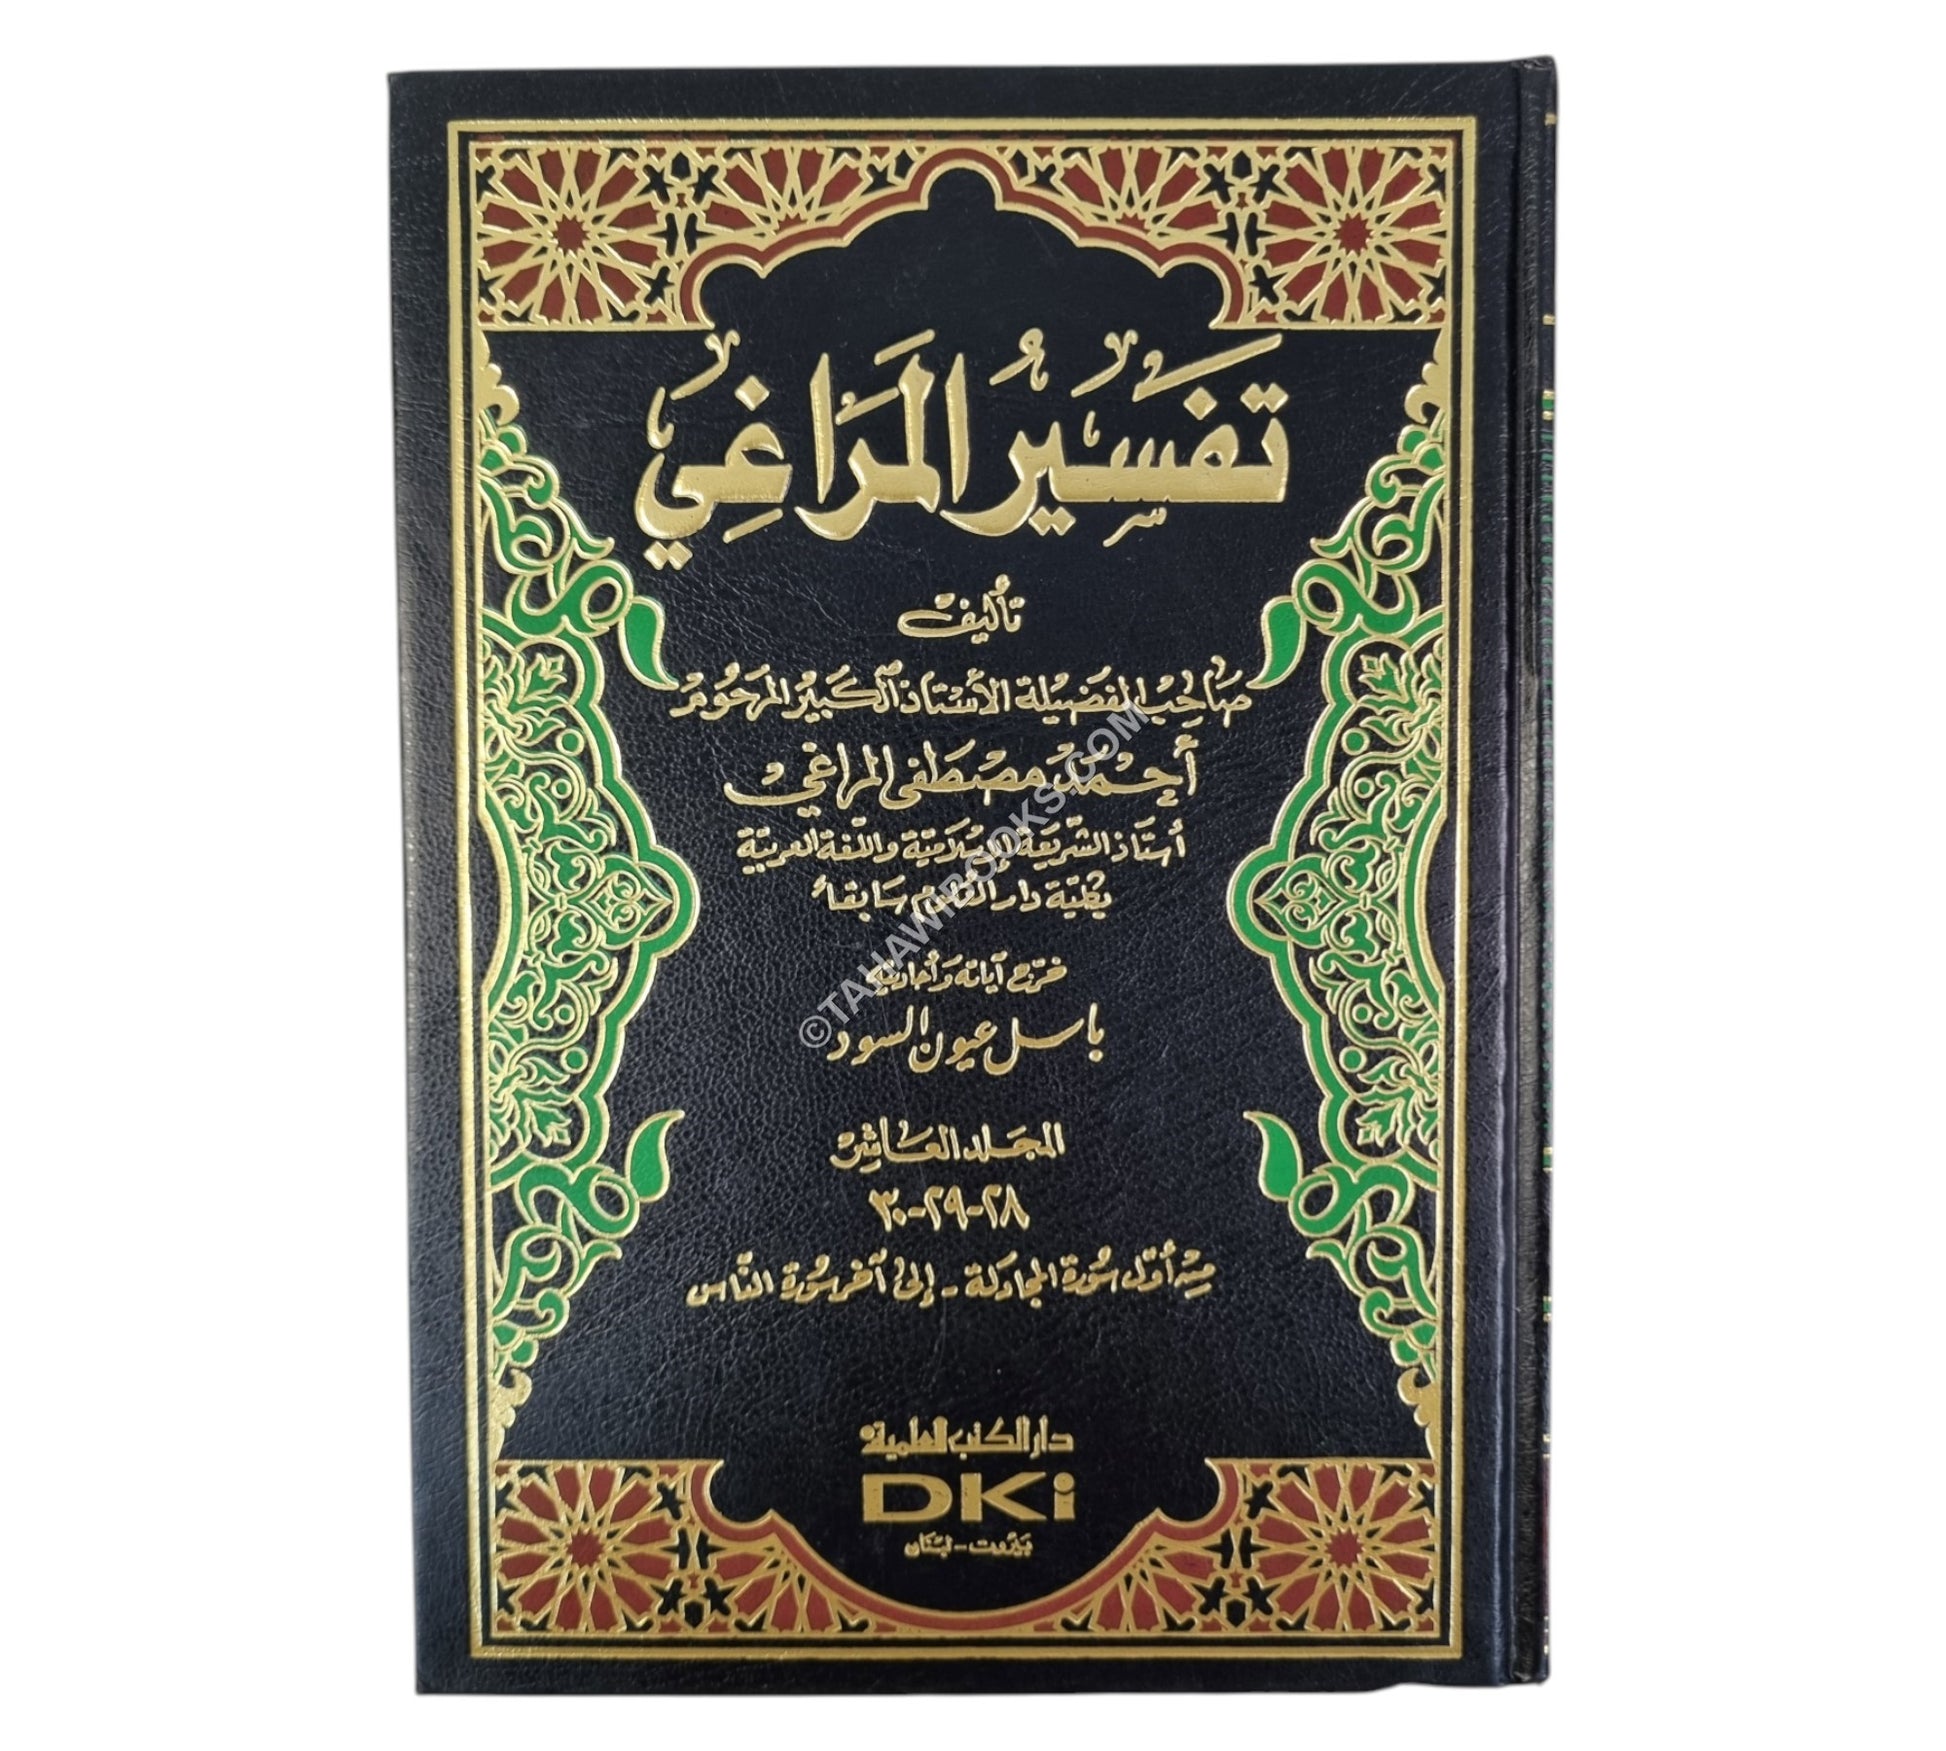 تَفْسِيرُ المَرَاغِي
تأليف
صَاحِب الفَضيلة الأستاذ الكَبير المَرحُوم
أحمد مصطفى المراغي
أستاذ الشريعة الإسلامية واللّغة العربية
بكلية دار العلوم سَابقاً
خرّج آياته وأحاديثه
باسل عيون السود
المجلد العاشر
٢٨-٢٩-٣٠
من أول سورة المجادلة - إلى آخر سورة الناس
دار الكتب العلمية
DKi
بيروت - لبنان
©TAHAWIBOOKS.COM